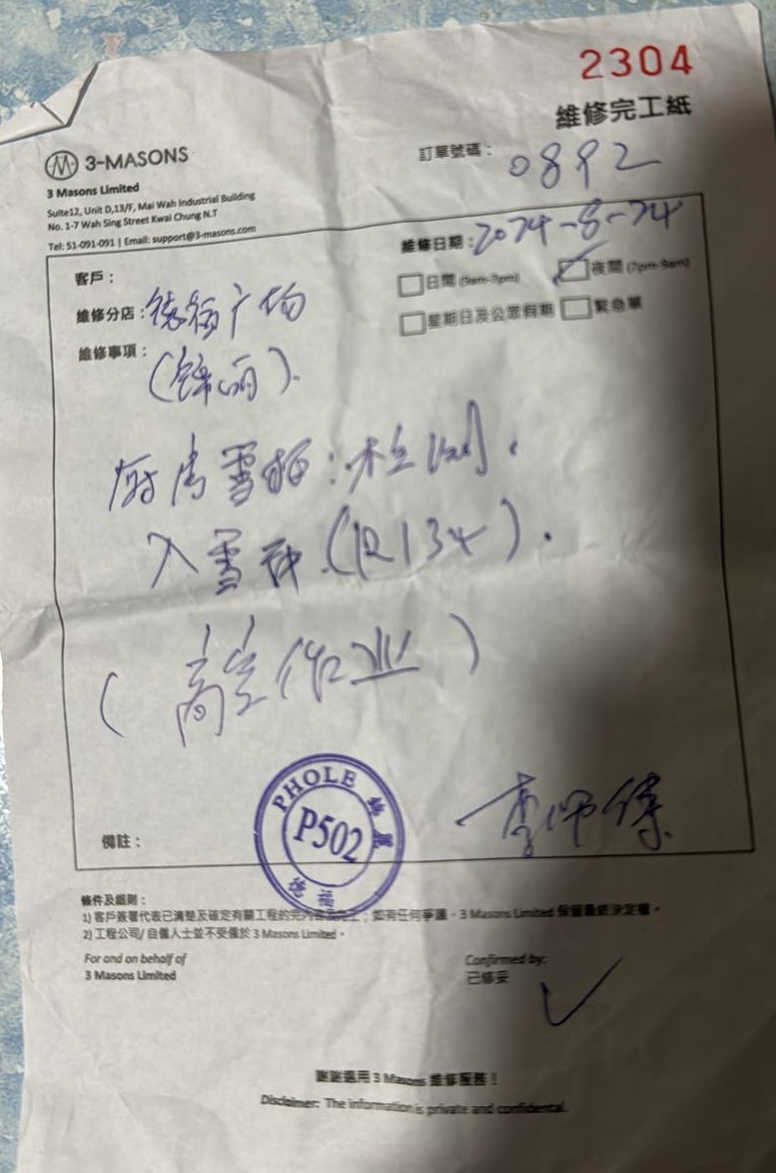 2304
維修完工紙
3-MASONS
訂單號碼：0892
3 Masons Limited
Suite12, Unit D,13/F, Mai Wah Industrial Building
No. 1-7 Wah Sing Street Kwai Chung N.T
Tel: 51-091-091 | Email: support@3-masons.com
維修日期：2024-8-24
客戶：
日間 (9am-7pm) 夜間 (7pm-9am)
維修分店：德福广场
星期日及公眾假期 緊急單
維修事項：
厨房雪柜：检测.
入雪种.(R134).
(高空作业)
李师傅
PHOLE
P502
德福
備註：
條件及細則：
1) 客戶簽署代表已清楚及確定有關工程的完；如有任何爭議，3 Masons Limited 保留最終決定權。
2) 工程公司/自僱人士並不受僱於 3 Masons Limited。
For and on behalf of
3 Masons Limited
Confirmed by:
已修妥
謝謝選用 3 Masons 維修服務！
Disclaimer: The information is private and confidential.